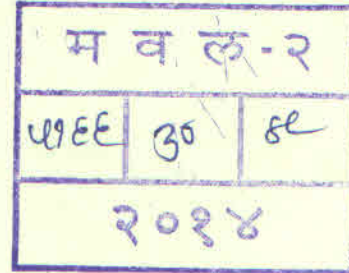 म व ल-२
५१६६ ३० ४८
२०१४